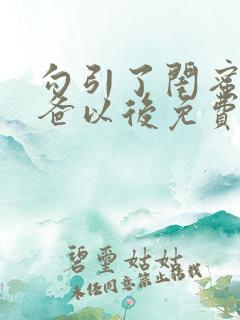 勾引了閨蜜
爸以後免費
碧璽姑姑
未经同意禁止转载